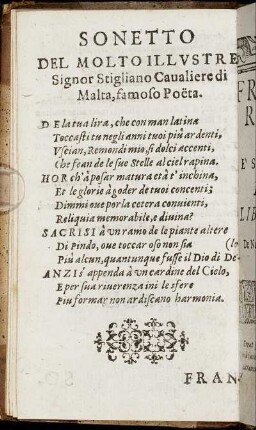 SONETTO
DEL MOLTO ILLVSTRE
Signor Stigliano Caualiere di
Malta, famoso Poëta.
DE la tua lira, che con man latina
Toccasti tu negli anni tuoi più ardenti,
Vscian, Remondi mio, si dolci accenti,
Che fean de le sue Stelle al ciel rapina.
HOR ch'à posar matura età t'inchina,
Et le glorie à goder de tuoi concenti;
Dimmi oue por la cetera conuienti,
Reliquia memorabile, e diuina?
SACRISI à vn ramo de le piante altere
Di Pindo, oue toccar oso non sia (lo
Più alcun, quantunque fusse il Dio di De-
ANZI s'appenda à vn cardine del Cielo,
E per sua riuerenza ini le sfere
Piu formar non ardiscano harmonia.
FRAN-